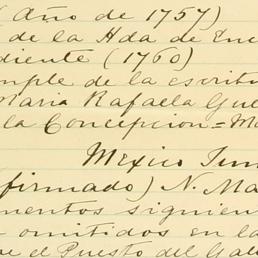 (Año de 1757)
de la Hda de Enc
diente (1760)
mple de la escritu
Maria Rafaela Gue
la Concepcion = Ma
Mexico Jun
(firmado) N. Ma
mentos siguien
omitidos en la
el Puesto del Gal